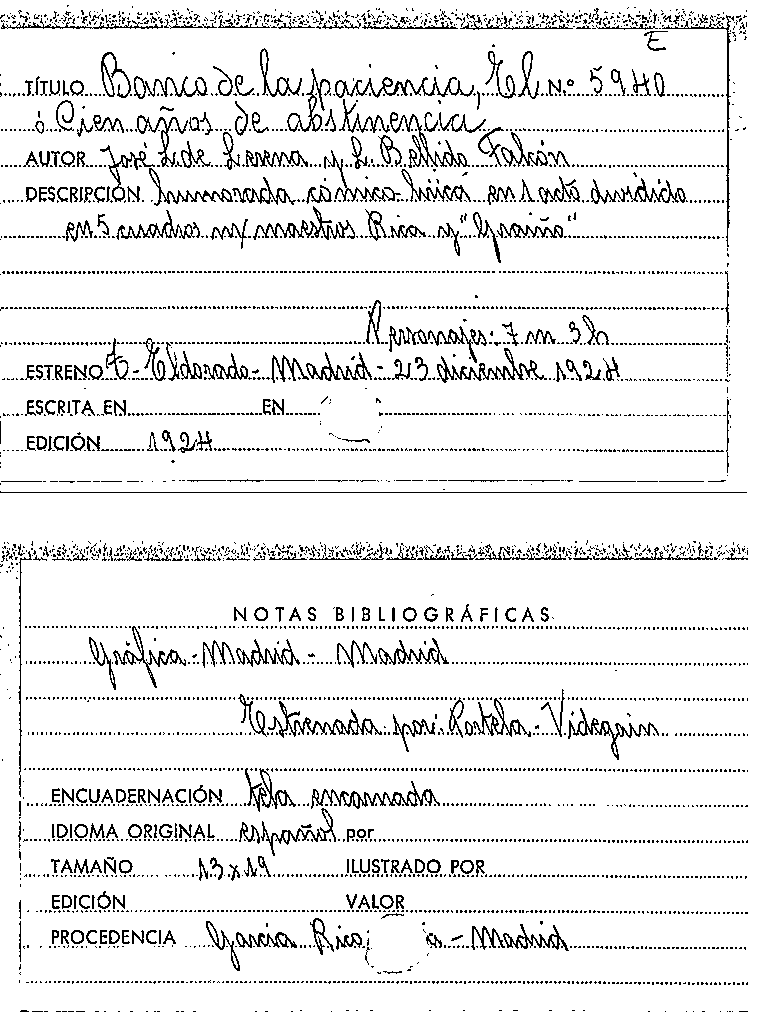 E
TÍTULO Banco de la paciencia, El N.º 5940
ó Cien años de abstinencia
AUTOR José L. de Lerena y L. Bellido Falcón
DESCRIPCIÓN humorada cómico-lírica en 1 acto dividido
en 5 cuadros m/ maestros Rica y "Graiño"
Personajes: 7 m 3 h
ESTRENO T- Eldorado - Madrid - 23 diciembre 1924
ESCRITA EN EN
EDICIÓN 1924
NOTAS BIBLIOGRÁFICAS
Gráfica - Madrid - Madrid
Estrenada por: Portela - Videgain
ENCUADERNACIÓN tela encarnada
IDIOMA ORIGINAL español por
TAMAÑO 13 x 19 ILUSTRADO POR
EDICIÓN VALOR
PROCEDENCIA García Rico - Madrid